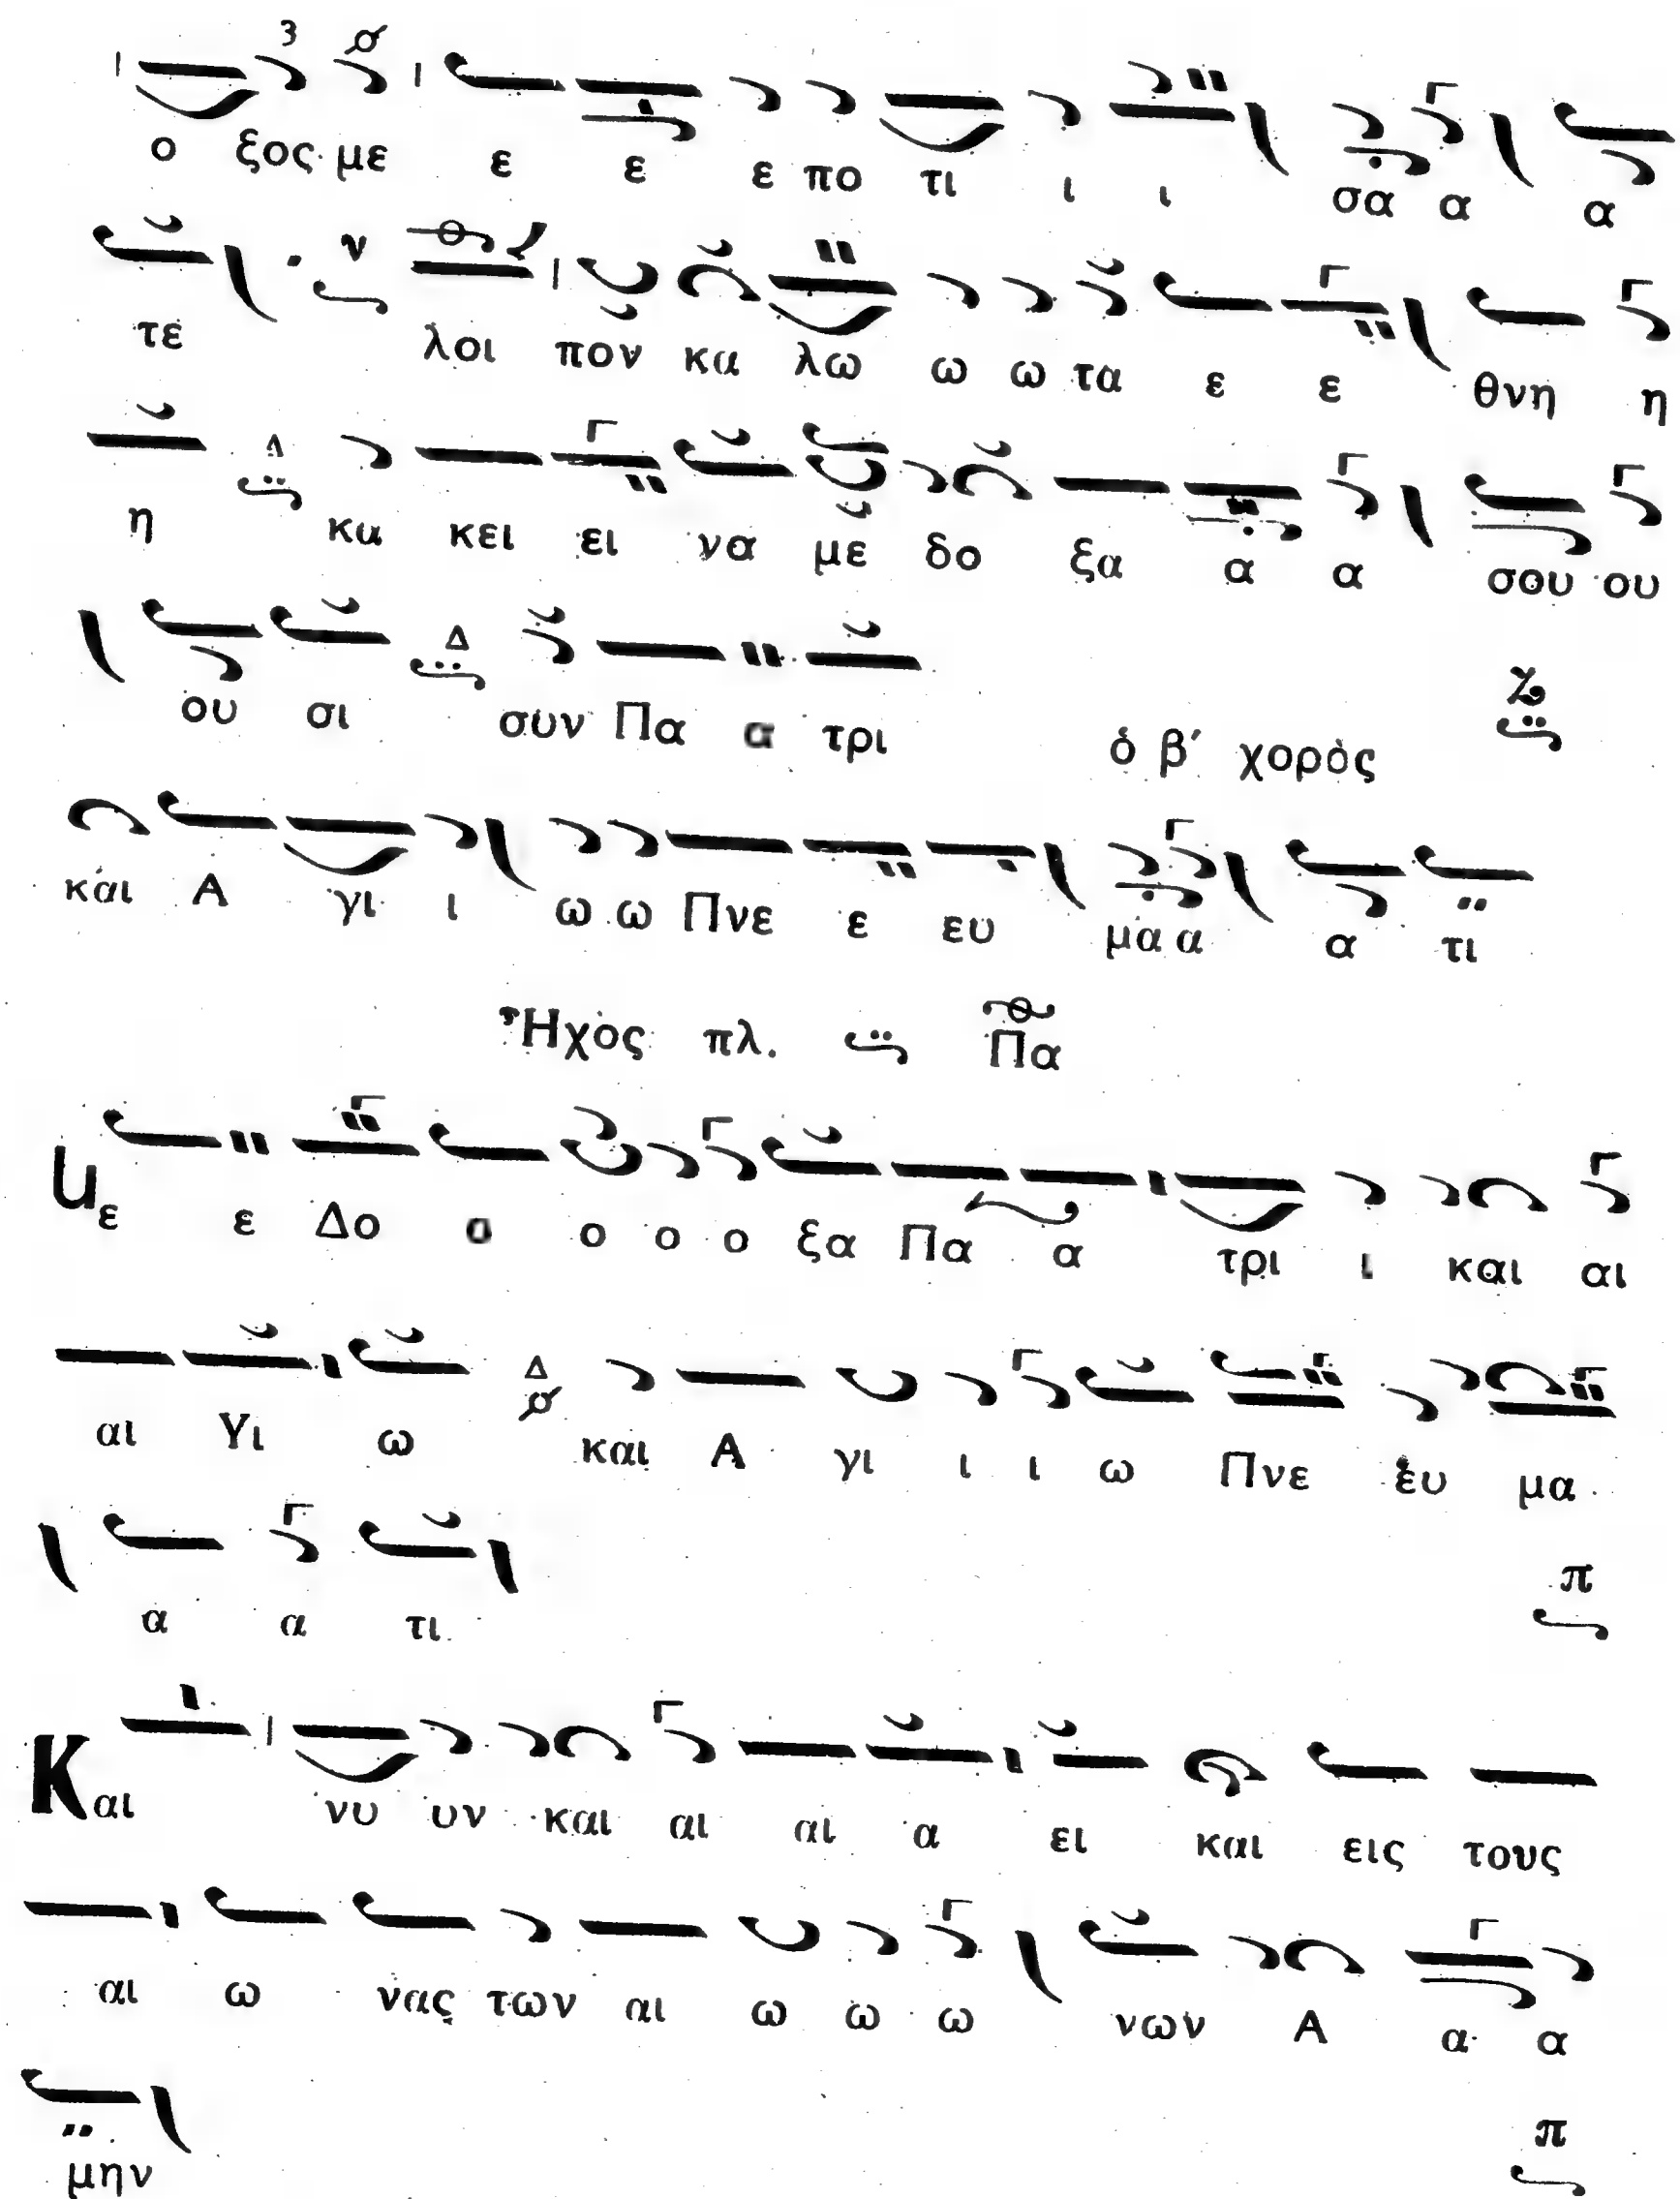 ο ξος με ε ε ε πο τι ι ι σα α α
τε λοι πον κα λω ω ω τα ε ε θνη η
η κα κει ει να με δο ξα α α σου ου
ου σι συν Πα α τρι ὁ β´ χορὸς
και Α γι ι ω ω Πνε ε ευ μα α α τι
Ἦχος πλ. Πα
ε ε Δο ο ο ο ο ξα Πα α τρι ι και αι
αι Υι ω και Α γι ι ι ω Πνε ευ μα
α α τι
Και νυ υν και αι αι α ει και εις τους
αι ω νας των αι ω ω ω νων Α α α
μην